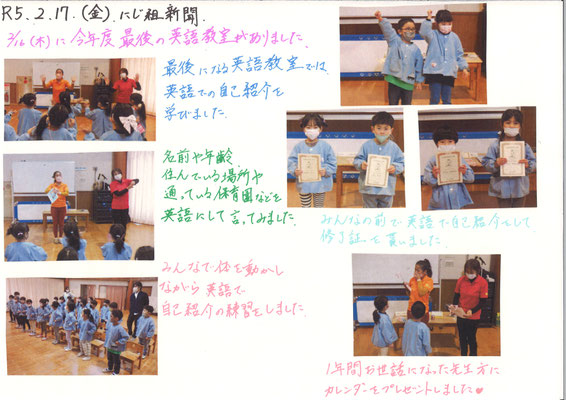 R5.2.17.(金).にじ組新聞.
2/16(木)に今年度最後の英語教室がありました.
最後になる英語教室では、
英語での自己紹介を
学びました.
名前や年齢.
住んでいる場所や
通っている保育園などを
英語にして言ってみました.
みんなで体を動かし
ながら英語で
自己紹介の練習をしました.
みんなの前で英語で自己紹介をして
修了証を貰いました.
1年間お世話になった先生方に
カレンダーをプレゼントしました♥